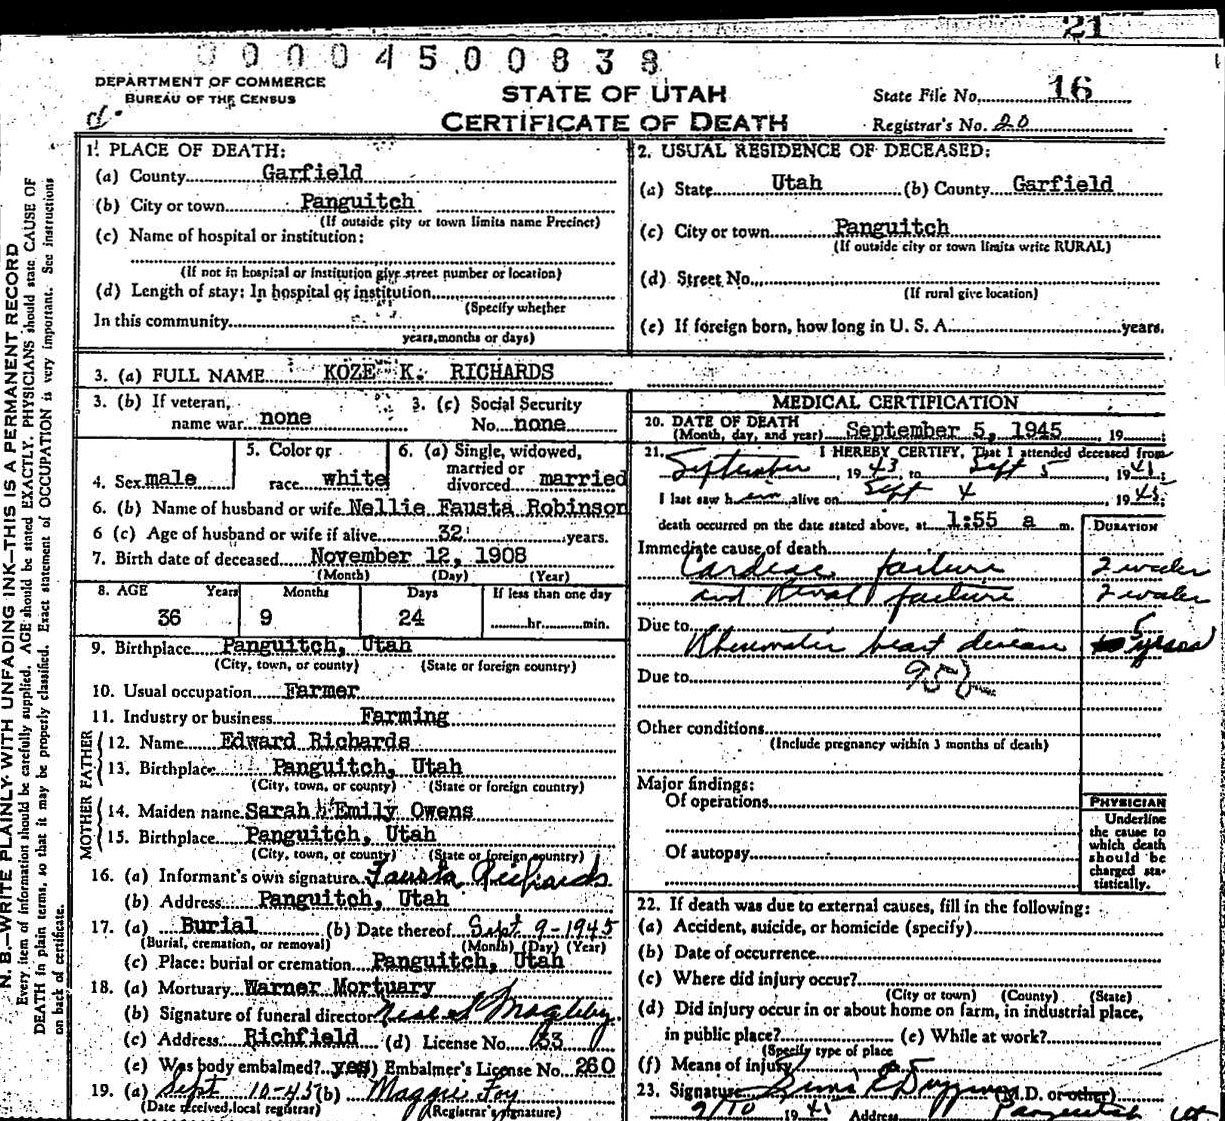 21
0 0 0 0 4 5 0 0 8 3 8
DEPARTMENT OF COMMERCE
BUREAU OF THE CENSUS
STATE OF UTAH
CERTIFICATE OF DEATH
State File No. 16
Registrar's No. 20
N. B.—WRITE PLAINLY WITH UNFADING INK—THIS IS A PERMANENT RECORD
Every item of information should be carefully supplied. AGE should be stated EXACTLY. PHYSICIANS should state CAUSE OF
DEATH in plain terms, so that it may be properly classified. Exact statement of OCCUPATION is very important. See instructions
on back of certificate.
1. PLACE OF DEATH:
(a) County Garfield
(b) City or town Panguitch
(If outside city or town limits name Precinct)
(c) Name of hospital or institution:
(If not in hospital or institution give street number or location)
(d) Length of stay: In hospital or institution
(Specify whether
In this community
years, months or days)
2. USUAL RESIDENCE OF DECEASED:
(a) State Utah (b) County Garfield
(c) City or town Panguitch
(If outside city or town limits write RURAL)
(d) Street No.
(If rural give location)
(e) If foreign born, how long in U. S. A. years.
3. (a) FULL NAME KOZE K. RICHARDS
3. (b) If veteran,
name war none
3. (c) Social Security
No. none
4. Sex male
5. Color or
race white
6. (a) Single, widowed,
married or
divorced married
6. (b) Name of husband or wife Nellie Fausta Robinson
6 (c) Age of husband or wife if alive 32 years.
7. Birth date of deceased November 12, 1908
(Month) (Day) (Year)
8. AGE Years Months Days If less than one day
36 9 24 hr. min.
9. Birthplace Panguitch, Utah
(City, town, or county) (State or foreign country)
10. Usual occupation Farmer
11. Industry or business Farming
FATHER
12. Name Edward Richards
13. Birthplace Panguitch, Utah
(City, town, or county) (State or foreign country)
MOTHER
14. Maiden name Sarah Emily Owens
15. Birthplace Panguitch, Utah
(City, town, or county) (State or foreign country)
16. (a) Informant's own signature Fausta Richards
(b) Address Panguitch, Utah
17. (a) Burial (b) Date thereof Sept 9-1945
(Burial, cremation, or removal) (Month) (Day) (Year)
(c) Place: burial or cremation Panguitch, Utah
18. (a) Mortuary Warner Mortuary
(b) Signature of funeral director Magleby
(c) Address Richfield (d) License No. 133
(e) Was body embalmed? yes) Embalmer's License No. 260
19. (a) Sept 10-45 (b) Maggie Foy
(Date received local registrar) (Registrar's signature)
MEDICAL CERTIFICATION
20. DATE OF DEATH
(Month, day, and year) September 5, 1945 19
21. I HEREBY CERTIFY, That I attended deceased from
September 19 43 to Sept 5 19
I last saw h im alive on Sept 4 19 45
death occurred on the date stated above, at 1:55 a m.
DURATION
Immediate cause of death
Cardiac failure 2 weeks
and Renal failure 2 weeks
Due to
Rheumatic heart disease 5 years
Due to
Other conditions
(Include pregnancy within 3 months of death)
Major findings:
Of operations
Of autopsy
PHYSICIAN
Underline
the cause to
which death
should be
charged sta-
tistically.
22. If death was due to external causes, fill in the following:
(a) Accident, suicide, or homicide (specify)
(b) Date of occurrence
(c) Where did injury occur?
(City or town) (County) (State)
(d) Did injury occur in or about home on farm, in industrial place,
in public place? (e) While at work?
(Specify type of place
(f) Means of injury
23. Signature (M.D. or other)
9/10 19 Address Panguitch Ut